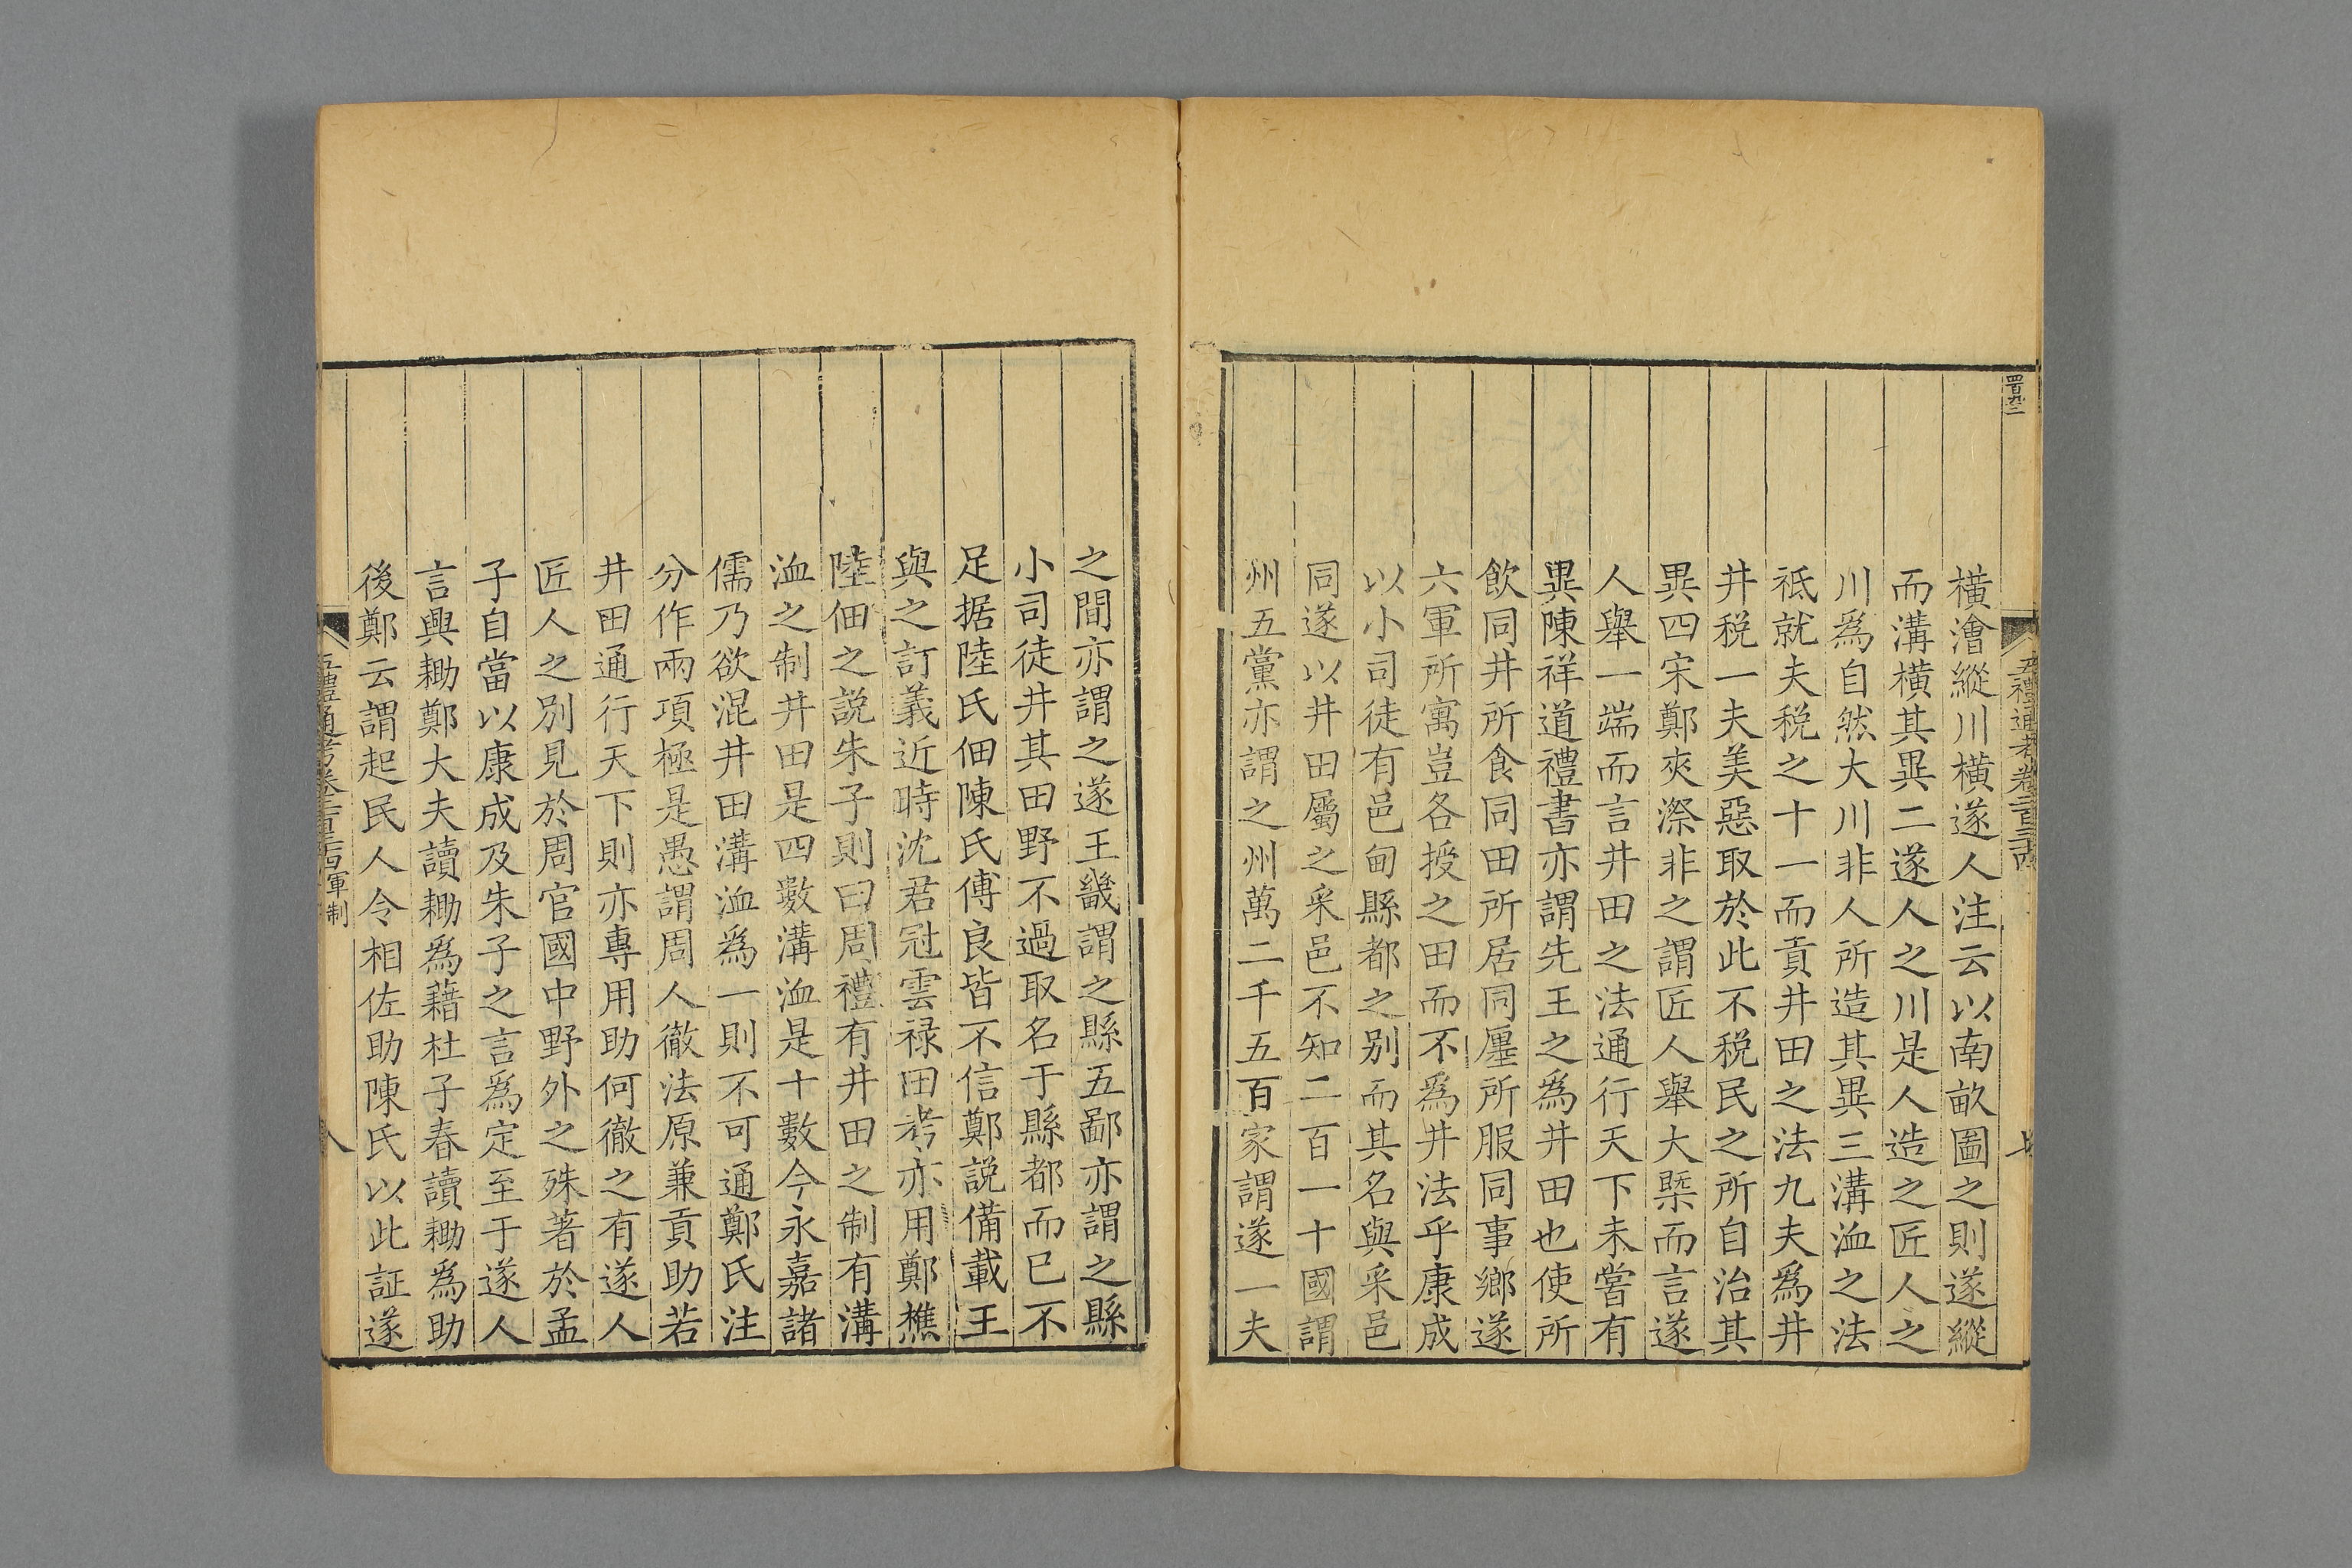 橫澮縱川橫遂人注云以南畝圖之則遂縱
而溝橫其異二遂人之川是人造之匠人之
川爲自然大川非人所造其異三溝洫之法
祗就夫税之十一而貢井田之法九夫爲井
井税一夫美惡取於此不税民之所自治其
異四宋鄭夾漈非之謂匠人舉大槩而言遂
人舉一端而言井田之法通行天下未嘗有
異陳祥道禮書亦謂先王之爲井田也使所
飲同井所食同田所居同廛所服同事鄉遂
六軍所寓豈各授之田而不爲井法乎康成
以小司徒有邑甸縣都之别而其名與采邑
同遂以井田屬之采邑不知二百一十國謂
州五黨亦謂之州萬二千五百家謂遂一夫
之間亦謂之遂王畿謂之縣五鄙亦謂之縣
小司徒井其田野不過取名于縣都而已不
足据陸氏佃陳氏傅良皆不信鄭説備載王
與之訂義近時沈君冠雲禄田考亦用鄭樵
陸佃之説朱子則曰周禮有井田之制有溝
洫之制井田是四數溝洫是十數今永嘉諸
儒乃欲混井田溝洫爲一則不可通鄭氏注
分作兩項極是愚謂周人徹法原兼貢助若
井田通行天下則亦專用助何徹之有遂人
匠人之别見於周官國中野外之殊著於孟
子自當以康成及朱子之言爲定至于遂人
言興耡鄭大夫讀耡爲藉杜子春讀耡爲助
後鄭云謂起民人令相佐助陳氏以此証遂
五禮通考卷二百三十四 軍制
八